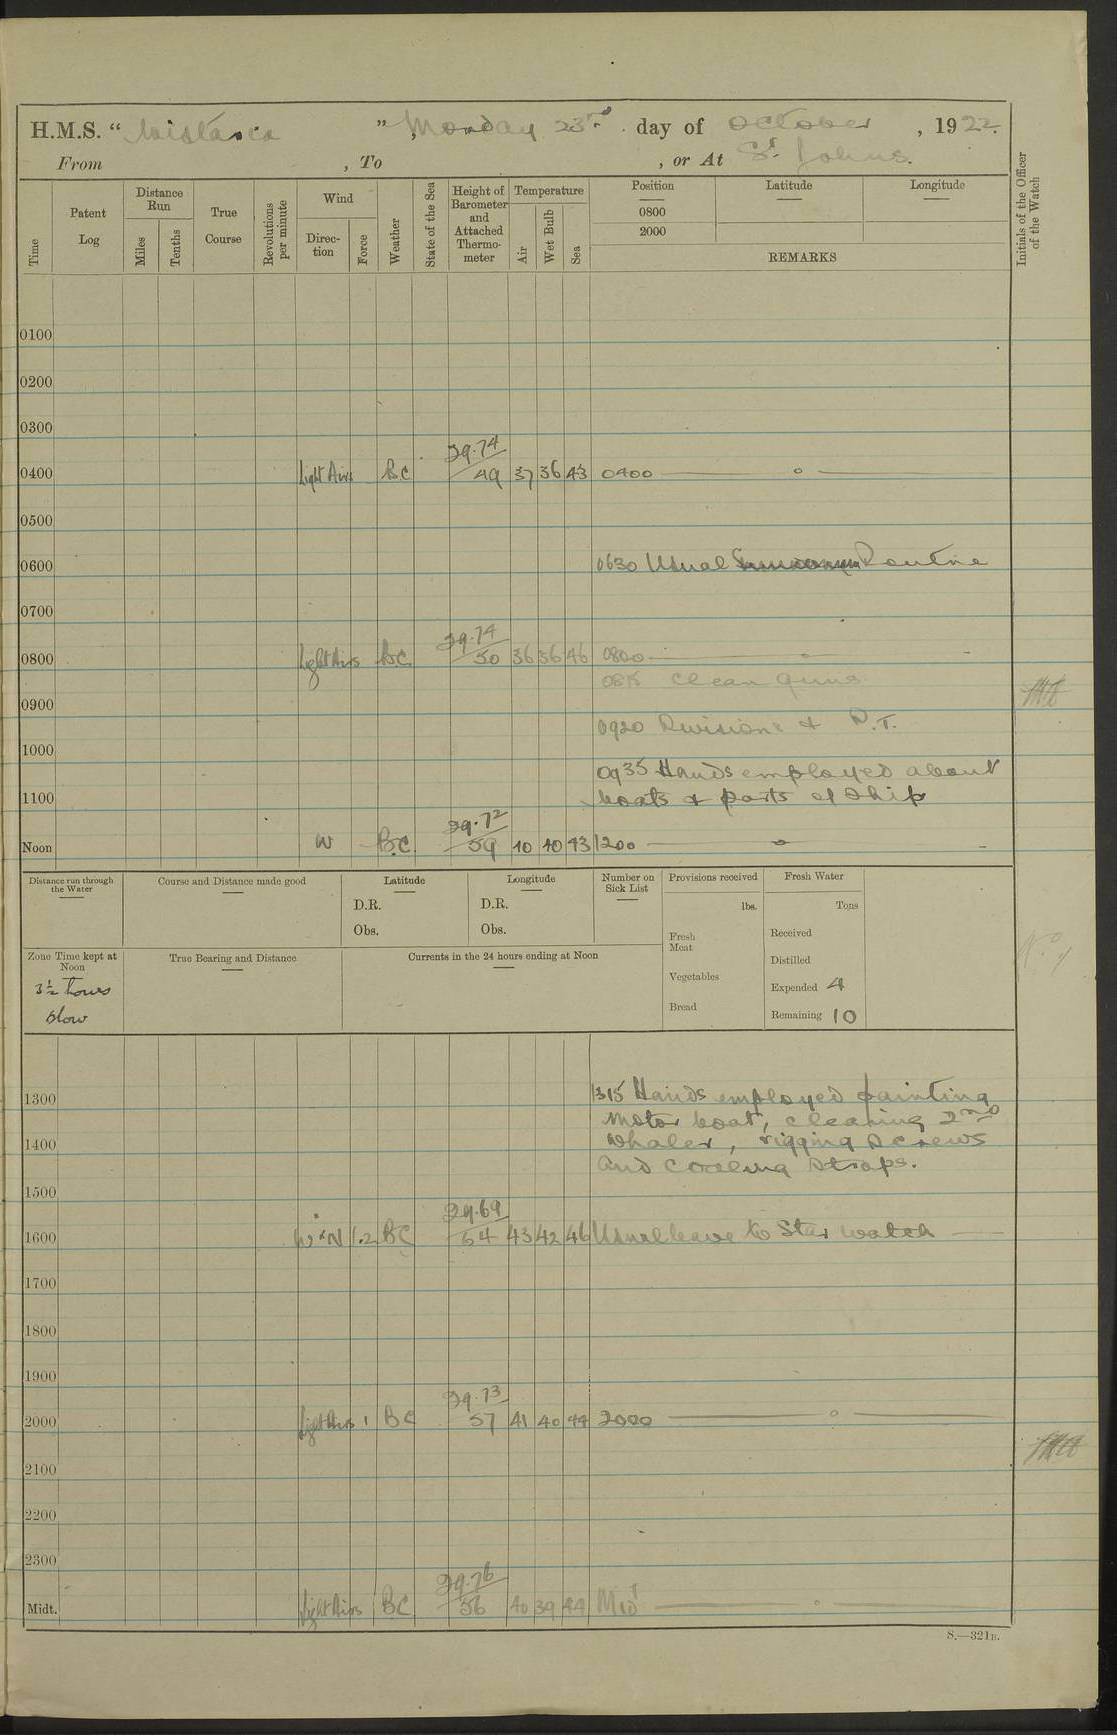 H.M.S. “Wistaria”, Monday 23rd day of October, 1922.
From , To , or At St. Johns.
Time
Patent Log
Distance Run
Miles
Tenths
True Course
Revolutions per minute
Wind
Direction
Force
Weather
State of the Sea
Height of Barometer and Attached Thermometer
Temperature
Air
Wet Bulb
Sea
Position
0800
2000
Latitude
Longitude
REMARKS
Initials of the Officer of the Watch
0100
0200
0300
29.74
0400 Light Airs BC 49 37 36 43 0400
0500
0600 0630 Usual Routine
0700
29.74
0800 Light Airs BC 50 36 36 46 0800
0815 Clean Guns
0900
0920 Divisions & P.T.
1000
0935 Hands employed about
1100 boats & parts of Ship
29.72
Noon W B.C. 59 40 40 43 1200
Distance run through the Water
Course and Distance made good
Latitude
D.R.
Obs.
Longitude
D.R.
Obs.
Number on Sick List
Provisions received
lbs.
Fresh Meat
Vegetables
Bread
Fresh Water
Tons
Received
Distilled
Expended 4
Remaining 10
Zone Time kept at Noon
3½ hours
slow
True Bearing and Distance
Currents in the 24 hours ending at Noon
1300 1315 Hands employed painting
motor boat, cleaning 2nd
1400 whaler, rigging screws
and straps.
1500
29.69
1600 W x N 1.2 BC 54 43 42 46 Usual leave to Star watch
1700
1800
1900
29.73
2000 Light Airs 1 BC 57 41 40 44 2000
2100
2200
2300
29.76
Midt. Light Airs BC 56 40 39 44 Midt
S.—321B.